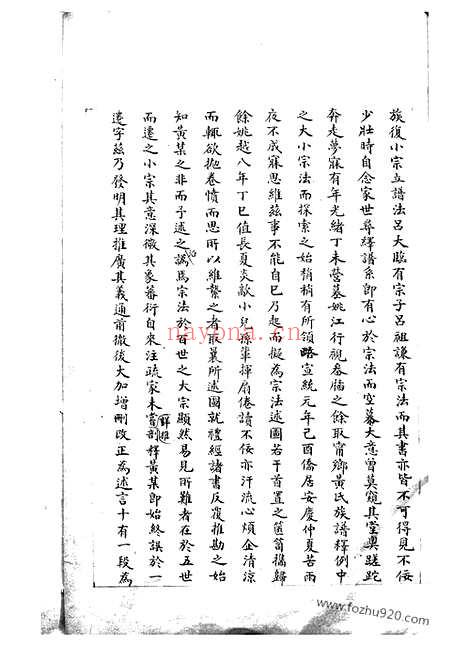 族復小宗立譜法呂大臨有宗子呂祖謙有宗法而其書亦皆不可得見不佞
少壯時自念家世尋繹譜系即有心於宗法而空慕大意曾莫窺其堂奧蹉跎
奔走夢寐有年光緒丁未營墓姚江行視舂牐之餘取甯鄉黃氏族譜釋例中
之大小宗法而探索之始稍稍有所領略宣統元年己酉僑居安慶仲夏苦雨
夜不成寐思維茲事不能自已乃起而擬為宗法述圖若干首置之篋笥攜歸
餘姚越八年丁巳值長夏炎歊小兒孫輩揮扇倦讀不佞亦汗流心煩企清涼
而輒欲拋卷憤而思所以維繫之者取曩所述圖就禮經諸書反覆推勘之始
知黃某之非而予述之譌焉宗法於百世之大宗顯然易見所難者在於五世
而遷之小宗其意深微其象蕃衍自來注疏家未嘗剖釋黃某即始終誤於一
遷字茲乃發明其理推廣其義通前徹後大加增刪改正為述言十有一段為
nayona.cn
www.fozhu920.com